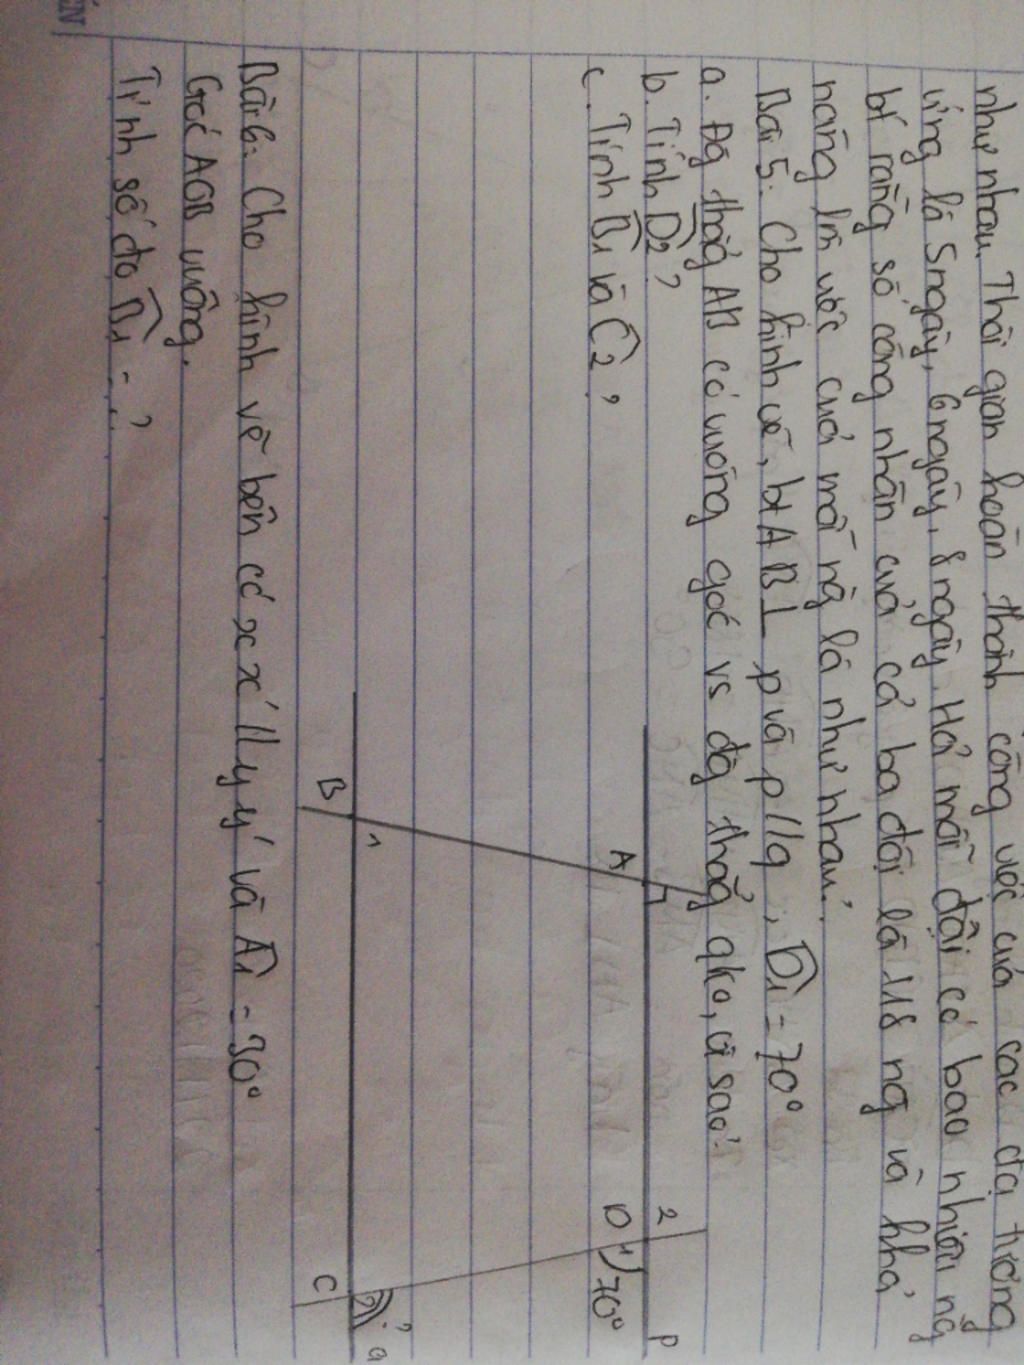 như nhau. Thời gian hoàn thành công việc của các đội tương
ứng là 5 ngày, 6 ngày, 8 ngày. Hỏi mỗi đội có bao nhiêu ng
bt rằng số công nhân của cả ba đội là 118 ng và khả
năng làm việc của mỗi ng là như nhau.
Bài 5: Cho hình vẽ, bt AB ⊥ p và p // q, D̂1 = 70°
a. Đg thẳg AB có vuông góc vs đg thẳg q ko, vì sao?
b. Tính D̂2?
c. Tính B̂1 và Ĉ2?
A
D
1
2
70°
p
B
1
C
2
?
q
Bài 6: Cho hình vẽ bên có xx' // yy' và Â1 = 30°
Góc AOB vuông.
Tính số đo B̂1 = ?